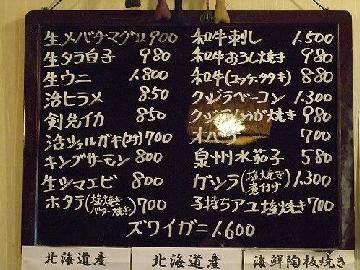 生メバチマグロ 900
生タラ白子 980
生ウニ 1.800
活ヒラメ 850
剣先イカ 850
活ツルガキ(2ケ) 700
キングサーモン 800
生ツマエビ 800
ホタテ(塩焼き バター焼き) 700
和牛刺し 1.500
和牛おろし焼き 980
和牛(コッケタタキ) 880
クジラベーコン 1.300
クジラ 焼き 980
オバケ 700
泉州水茄子 580
ゲソラ(塩焼き 煮付け) 1.300
子持ちアユ塩焼き 700
ズワイガニ 1.600
北海道産
北海道産
海鮮陶板焼き